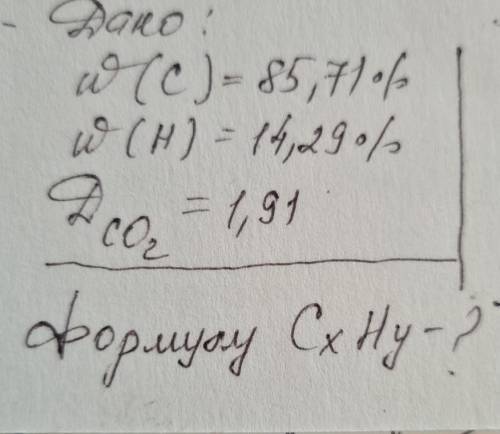 Дано:
w(C) = 85,71%
w(H) = 14,29%
D CO2 = 1,91
Формулу CxHy - ?